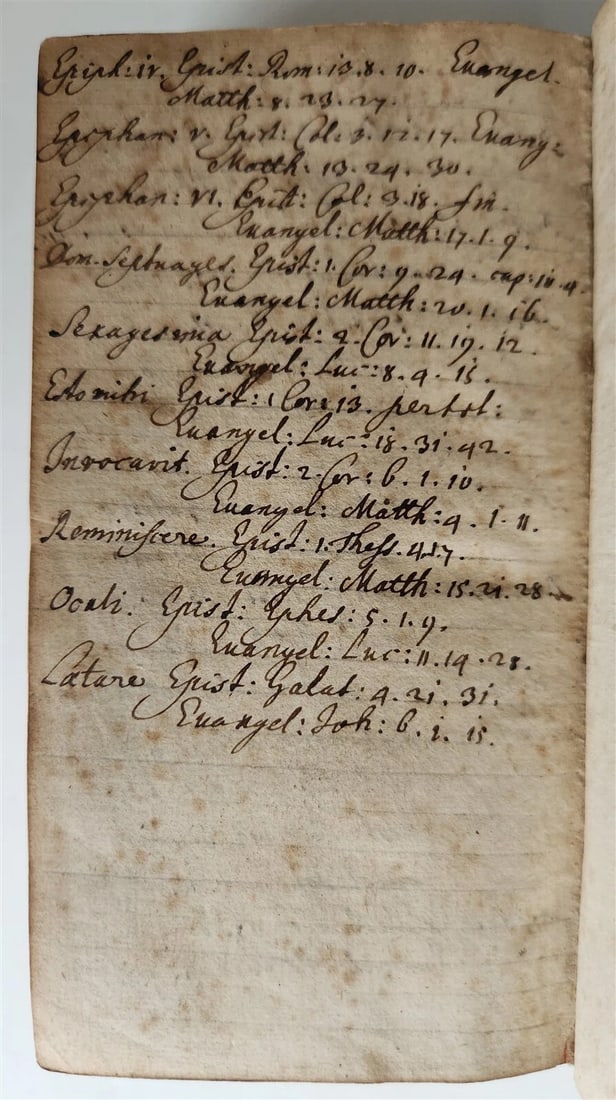 Epiph: iv. Epist: Rom: 13. 8. 10. Evangel.
Matth: 8. 23. 27.
Epiphan: v. Epist: Col: 3. 12. 17. Evang:
Matth: 13. 24. 30.
Epiphan: VI. Epist: Col: 3. 18. fin.
Evangel: Matth: 17. 1. 9.
Dom. Septuages. Epist: 1. Cor: 9. 24. cap: 10. 4.
Evangel: Matth: 20. 1. 16.
Sexagesima Epist: 2. Cor: 11. 19. 12.
Evangel: Luc: 8. 4. 15.
Estomihi Epist: 1 Cor: 13. per tot:
Evangel: Luc: 18. 31. 42.
Invocavit. Epist: 2. Cor: 6. 1. 10.
Evangel: Matth: 4. 1. 11.
Reminiscere. Epist: 1. Thess. 4. 1. 7.
Evangel: Matth: 15. 21. 28.
Oculi. Epist: Ephes: 5. 1. 9.
Evangel: Luc: 11. 14. 28.
Lætare Epist: Galat: 4. 21. 31.
Evangel: Joh: 6. 1. 15.